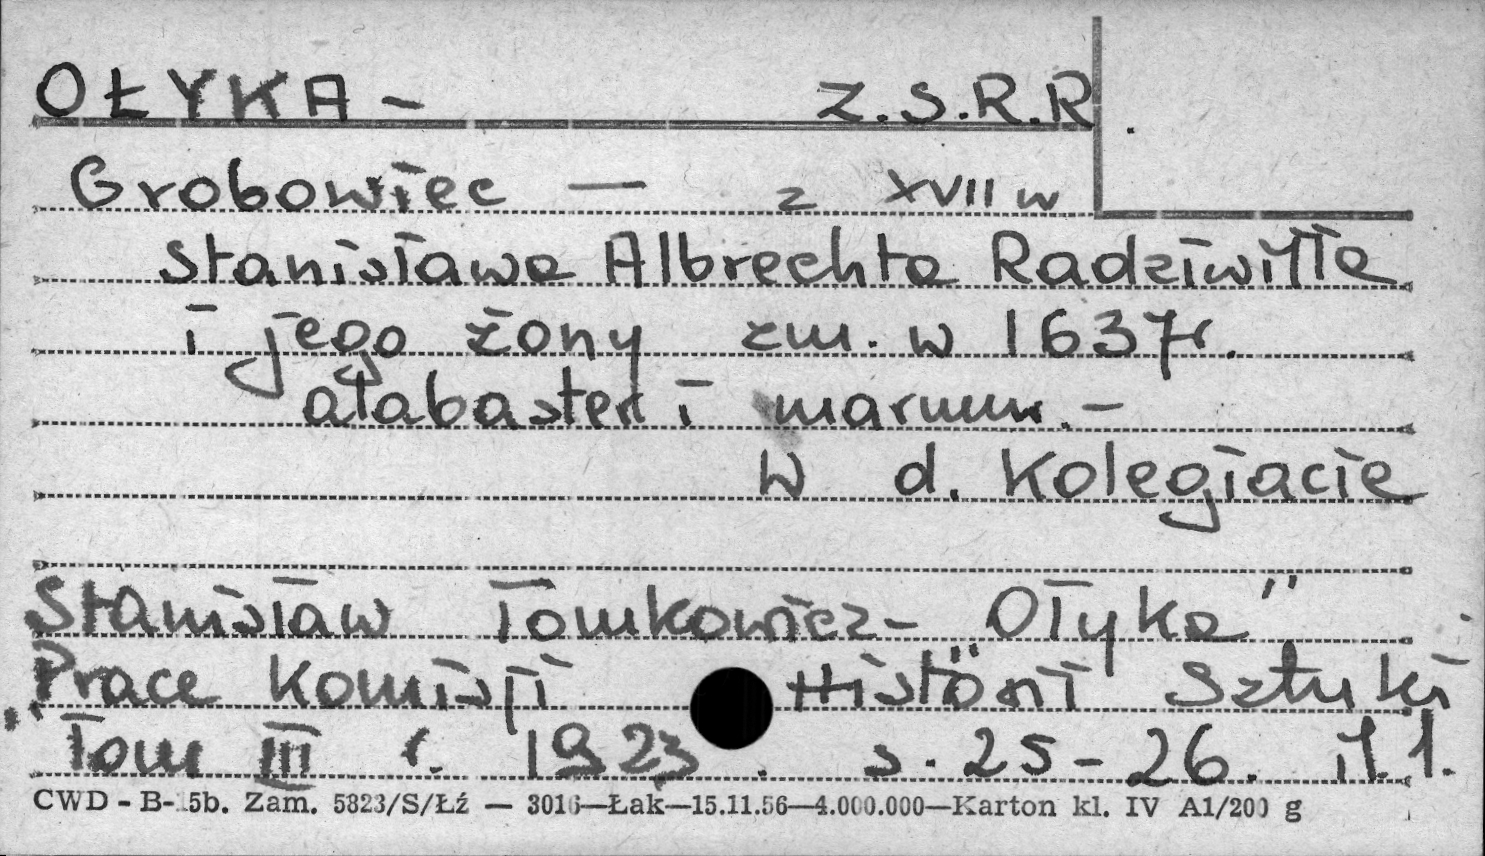 OŁYKA - Z.S.R.R.
Grobowiec — z XVII w
Stanisława Albrechta Radziwiłła
i jego żony zm. w 1637 r.
alabaster i marmur. -
w d. Kolegiacie
Stanisław Tomkowicz - Ołyka"
"Prace Komisji Historii Sztuki"
Tom III r. 1923. s. 25-26. ił 1.
CWD - B-15b. Zam. 5823/S/Łź — 3016—Łak—15.11.56—4.000.000—Karton kl. IV A1/200 g